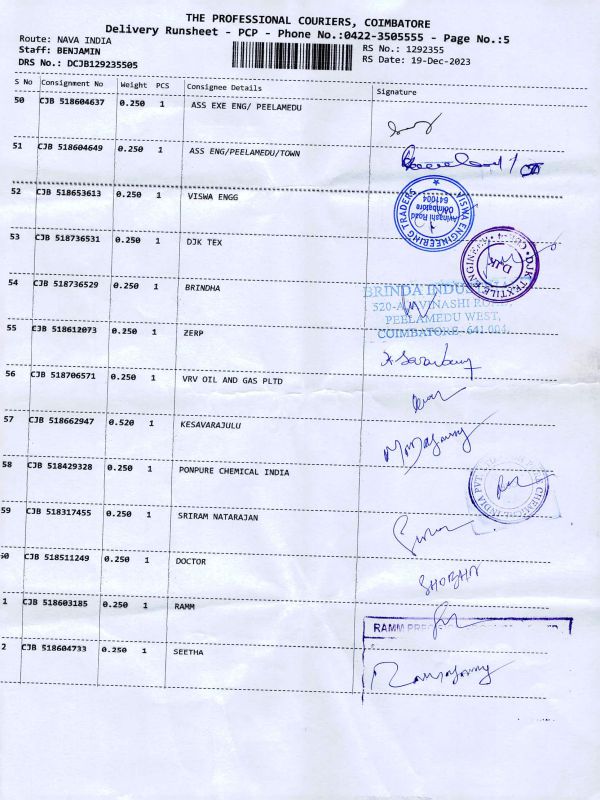 THE PROFESSIONAL COURIERS, COIMBATORE
Delivery Runsheet - PCP - Phone No.:0422-3505555 - Page No.:5
Route: NAVA INDIA RS No.: 1292355
Staff: BENJAMIN RS Date: 19-Dec-2023
DRS No.: DCJB129235505
S No Consignment No Weight PCS Consignee Details Signature
50 CJB 518604637 0.250 1 ASS EXE ENG/ PEELAMEDU
51 CJB 518604649 0.250 1 ASS ENG/PEELAMEDU/TOWN
52 CJB 518653613 0.250 1 VISWA ENGG
VISWA ENGINEERING TRADERS
Avinashi Road
Coimbatore
641004
53 CJB 518736531 0.250 1 DJK TEX
DJK TEXTILE ENGINEERS
DJK
54 CJB 518736529 0.250 1 BRINDHA
BRINDA
AVINASHI
PEELAMEDU WEST,
COIMBATORE - 641 004.
55 CJB 518612073 0.250 1 ZERP
56 CJB 518706571 0.250 1 VRV OIL AND GAS PLTD
57 CJB 518662947 0.520 1 KESAVARAJULU
58 CJB 518429328 0.250 1 PONPURE CHEMICAL INDIA
CHEMICAL INDIA PVT
59 CJB 518317455 0.250 1 SRIRAM NATARAJAN
60 CJB 518511249 0.250 1 DOCTOR
SHOBHN
1 CJB 518603185 0.250 1 RAMM
RAMM
2 CJB 518604733 0.250 1 SEETHA